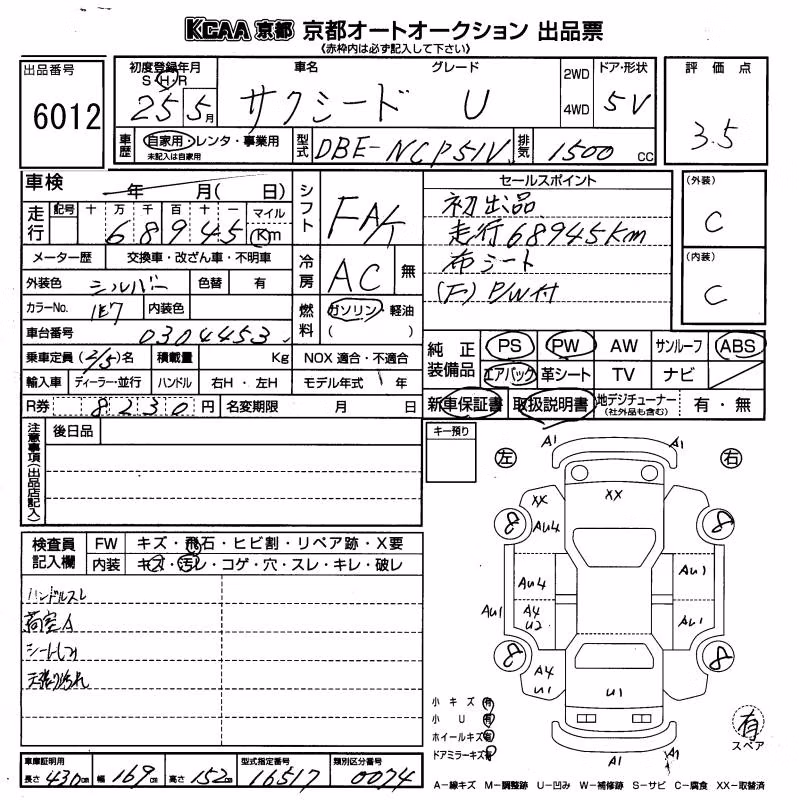 KCAA 京都 京都オートオークション 出品票
《赤枠内は必ず記入して下さい》
出品番号
6012
初度登録年月
S・H・R
25 5月
車名 グレード
サクシード U
2WD
4WD
ドア・形状
5V
評価点
3.5
車歴
自家用・レンタ・事業用
未記入は自家用
型式
DBE-NCP51V
排気
1500 cc
車検
年 月( 日)
走行
記号 十 万 千 百 十 一 マイル
68945 Km
メーター歴 交換車・改ざん車・不明車
外装色 シルバー 色替 有
カラーNo. 1E7 内装色
車台番号 0304453
乗車定員 (2/5)名 積載量 Kg NOX 適合・不適合
輸入車 ディーラー・並行 ハンドル 右H・左H モデル年式 年
R券 8230 円 名変期限 月 日
シフト
FA/T
冷房
AC 無
燃料
ガソリン・軽油
( )
セールスポイント
初出品
走行68945Km
布シート
(F) P/W付
(外装)
C
(内装)
C
純正装備品
PS PW AW サンルーフ ABS
エアバック 革シート TV ナビ
新車保証書 取扱説明書 地デジチューナー
(社外品も含む)
有・無
注意事項(出品店記入)
後日品
キー預り
検査員記入欄
FW キズ・飛石・ヒビ割・リペア跡・X要
内装 キズ・汚レ・コゲ・穴・スレ・キレ・破レ
ハンドルスレ
荷室A
シートしみ
天張り汚れ
左 右
A1 A1
XX XX
8 8
AU4
AU4 AU1
AU1 A4 U2 AU1
8 8
A4 U1 U1
A1 A1
小キズ 有
小U 有
ホイールキズ 有
ドアミラーキズ 有
有
スペア
車庫証明用
長さ 430cm 幅 169cm 高さ 152cm
型式指定番号
16517
類別区分番号
0074
A―線キズ M―調整跡 U―凹み W―補修跡 S―サビ C―腐食 XX―取替済